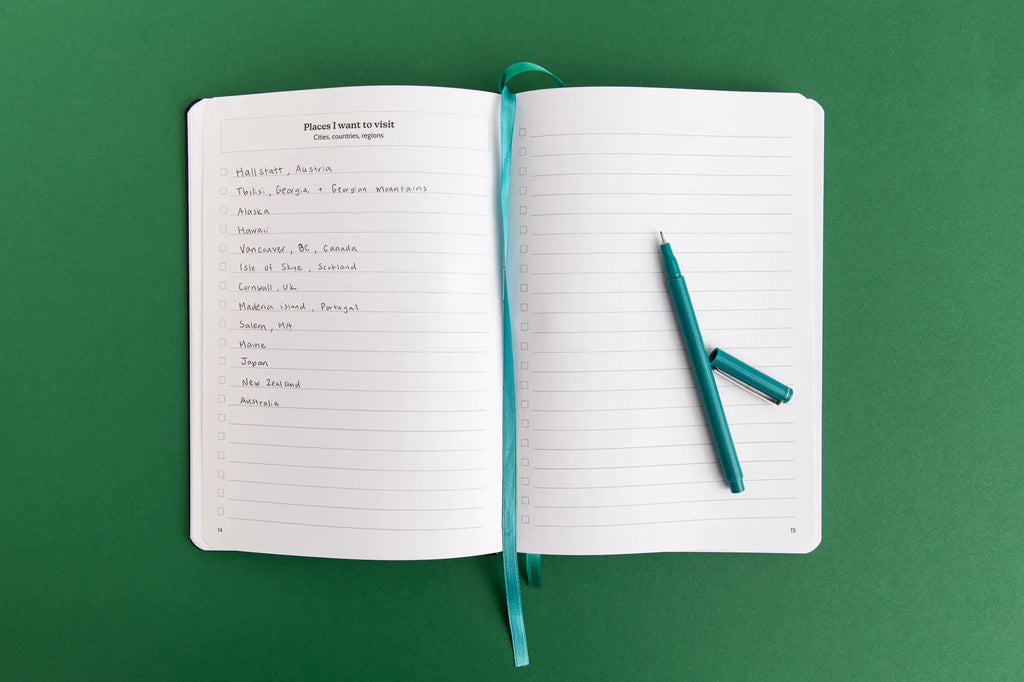 Places I want to visit
Cities, countries, regions
Hallstatt, Austria
Tbilisi, Georgia + Georgian mountains
Alaska
Hawaii
Vancouver, BC, Canada
Isle of Skye, Scotland
Cornwall, UK
Maderia island, Portugal
Salem, MA
Maine
Japan
New Zealand
Australia
14
15